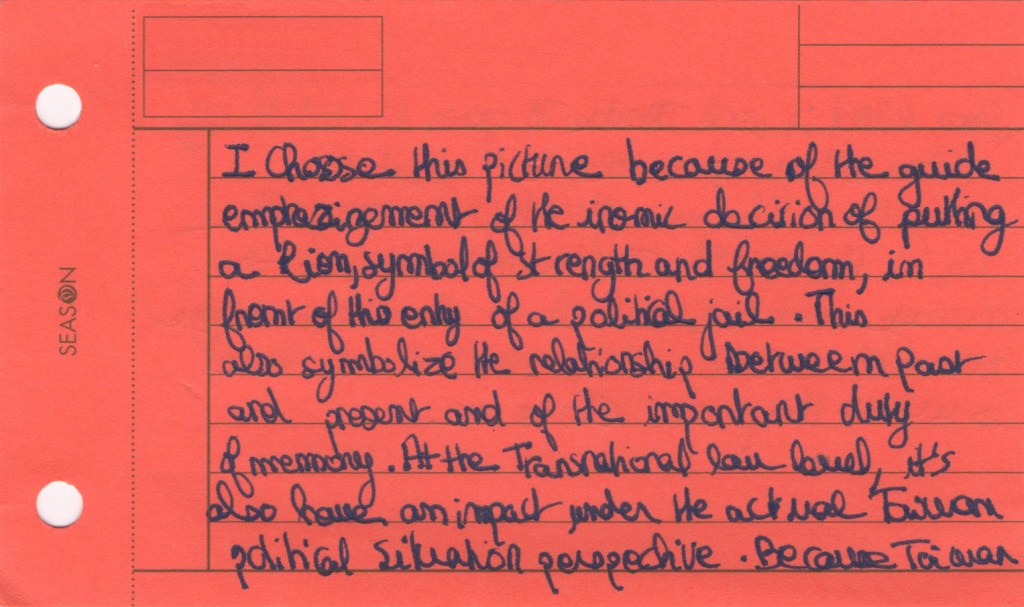 SEASON
I Choose this picture because of the guide
emphazingement of the ironic decision of putting
a Lion, symbol of strength and freedom, in
front of this entry of a political jail. This
also symbolize the relationship between past
and present and of the important duty
of memory. At the Transnational law level, it's
also have an impact under the actual Taiwan
political situation perspective. Because Taiwan